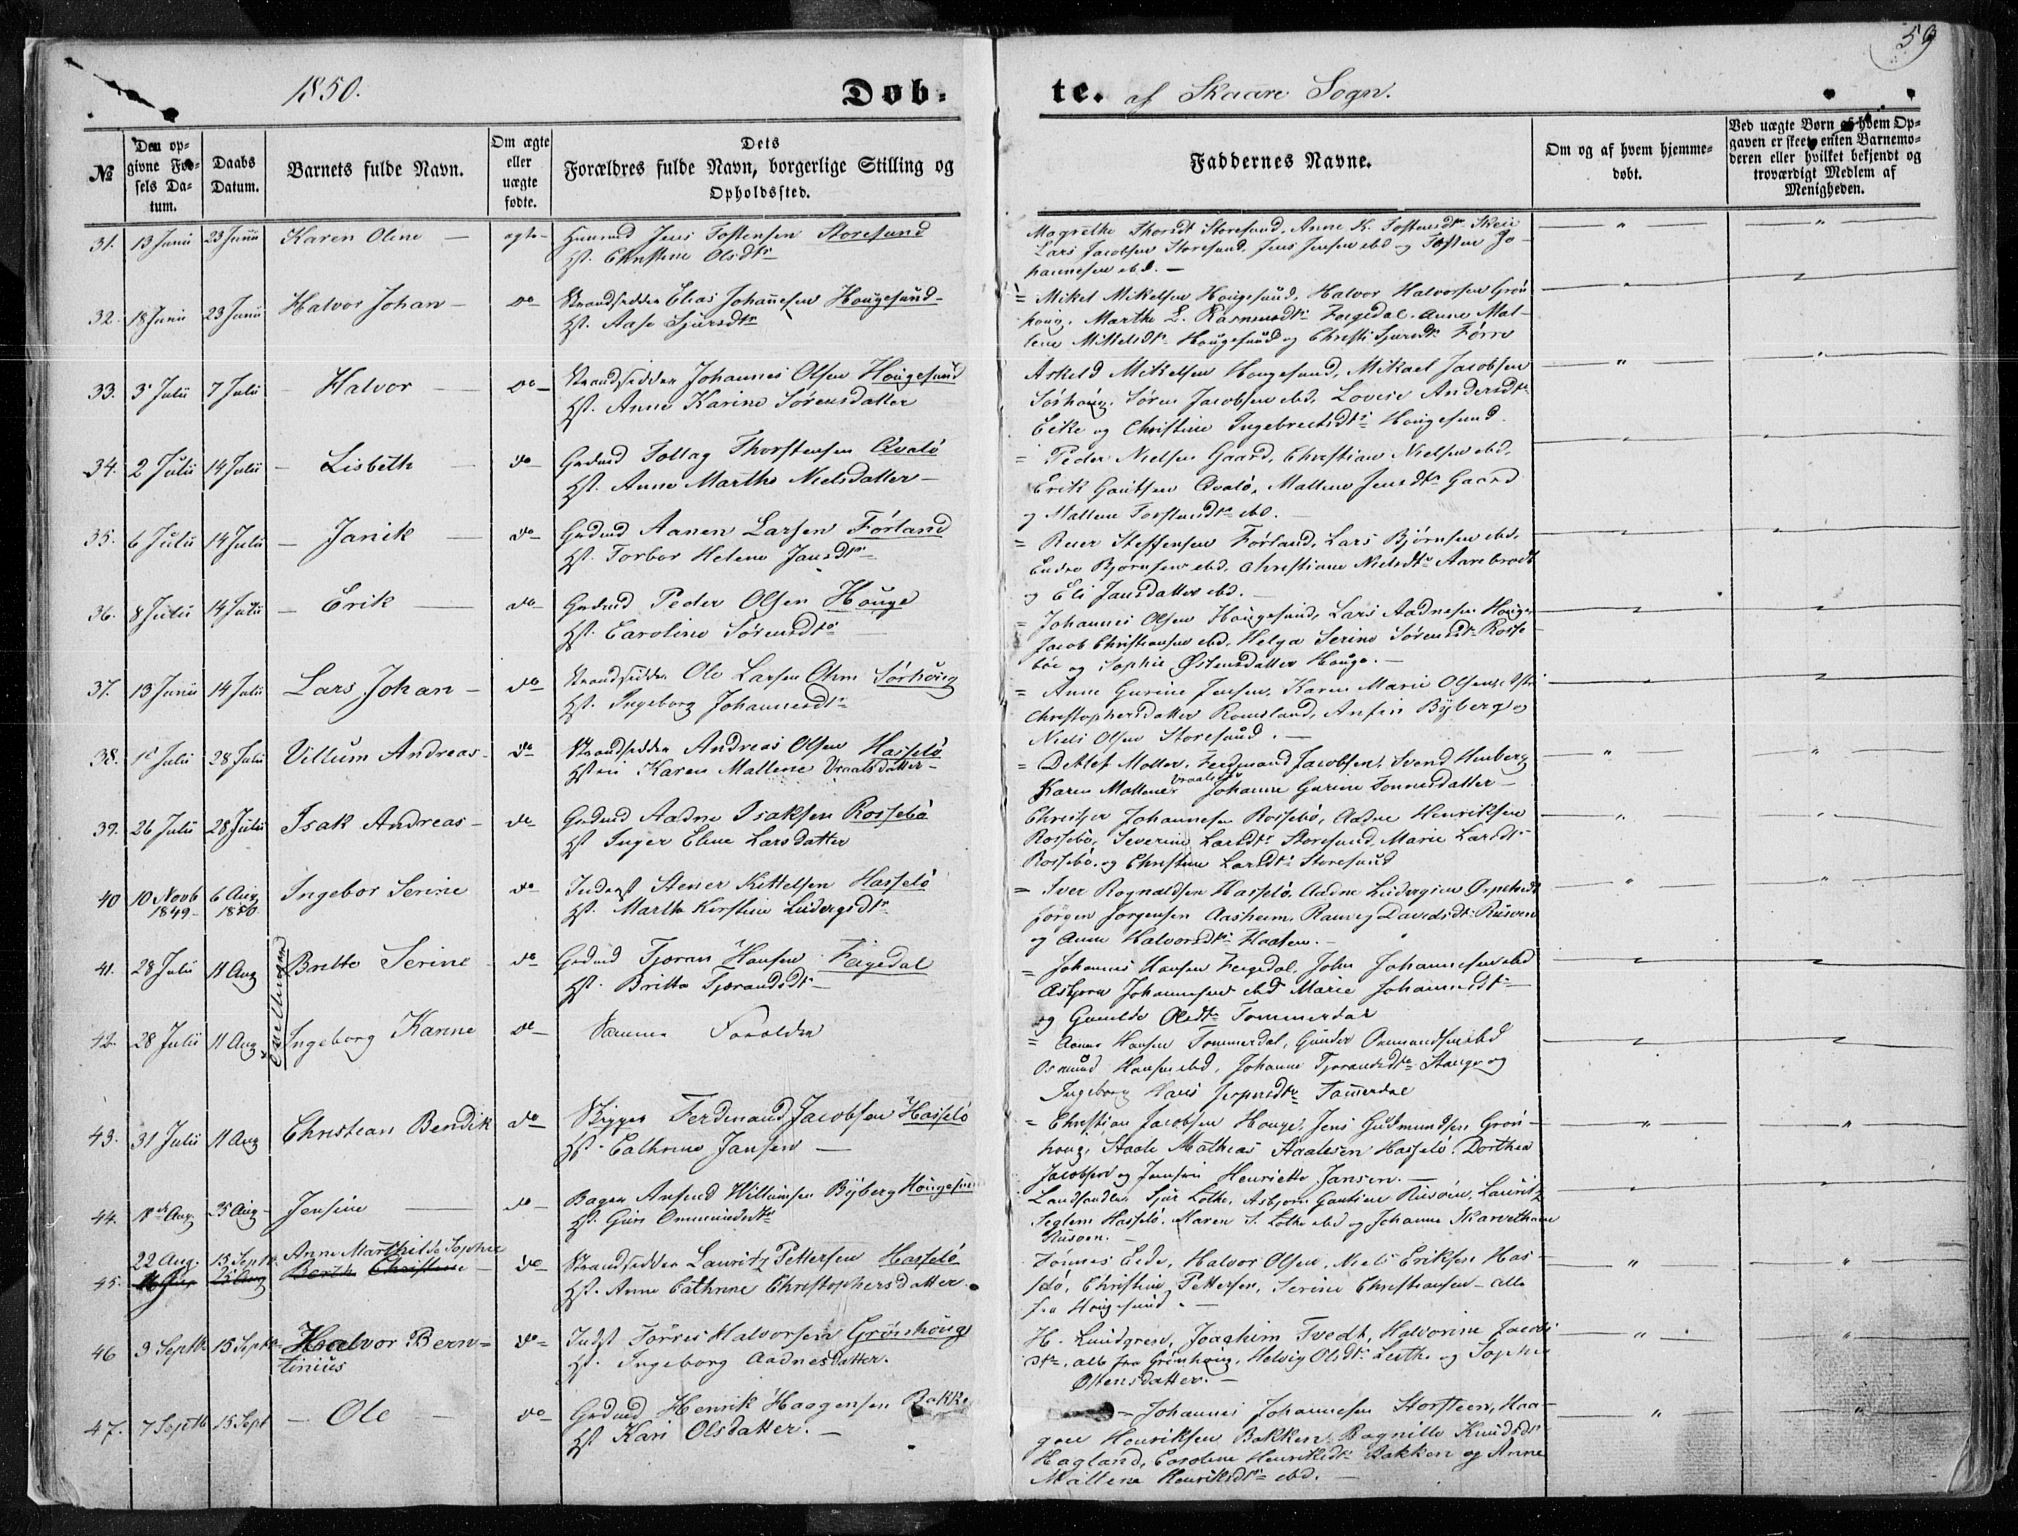 59
1850.
Døb-
te. af Skaare Sogn.
№
Den op-
givne Fød-
sels Da-
tum.
Daabs
Datum.
Barnets fulde Navn.
Om ægte
eller
uægte
fødte.
Dets
Forældres fulde Navn, borgerlige Stilling og
Opholdssted.
Faddernes Navne.
Om og af hvem hjemme-
døbt.
Ved uægte Børn af hvem Op-
gaven er skeet, enten Barnemo-
deren eller hvilket bekjendt og
troværdigt Medlem af
Menigheden.
31. 13 Junii 23 Junii Karen Oline — ægte Jens Tostensen Storesund
Hst. Christine Olsdtr
Magrethe Thorsdt Storesund, Anne K. Tostensdtr Skeie
Lars Jacobsen Storesund, Jens Jensen ibd og Tosten Jo-
hannesen ibd. —
32. 18 Junii 23 Junii Halvor Johan — do Strandsidder Elias Johannesen Hougesund
Hst. Aase Sjursdtr
= Mikel Mikelsen Hougesund, Halvor Halvorsen Grøn-
houg, Marthe L. Rasmusdtr Feigedal, Anne Mal-
lene Mikkelsdtr Hougesund og Christi Sjursdtr Førre
33. 3 Julii 7 Julii — Halvor — do Strandsidder Johannes Olsen Hougesund
Hst. Anne Karine Sørensdatter
Askeld Mikelsen Hougesund, Mikael Jacobsen
Sørhoug, Søren Jacobsen ibd, Lovise Andersdtr
Eike og Christine Ingebretsdtr Hougesund.
34. 2 Julii 14 Julii — Lisbeth — do Grdmd Tollag Thorstensen Qvalø
Hst. Anne Marthe Nielsdatter —
= Peder Nielsen Gaard, Christian Nielsen ibd,
Erik Gautsen Qvalø, Mallene Jensdtr Gaard
og Mallene Torstensdtr ibd. —
35. 6 Julii 14 Julii — Janik — do Grdmd Aanen Larsen Førland
Hst. Torbor Helene Jansdtr
= Reier Steffensen Førland, Lars Bjørnsen ibd,
Endre Bjørnsen ibd, Christiane Nielsdtr Aarebrodt
og Eli Jansdatter ibd. —
36. 8 Julii 14 Julii — Erik — do Grdmd Peder Olsen Houge
Hst. Caroline Sørensdtr
= Johannes Olsen Hougesund, Lars Aadnesen Houge,
Jacob Christiansen ibd, Helga Serine Sørensdtr Rosse-
bøe og Sophie Østensdatter Houge. —
37. 13 Junii 14 Julii Lars Johan — do Strandsidder Ole Larsen Sørhoug
Hst. Ingeborg Johannesdtr
= Anne Gurine Jensen, Karen Marie Olsen,
Christophersdatter Romsland, Anfin Byberg og
Niels Olsen Storesund. —
38. 1 Julii 28 Julii Villum Andreas — do Strandsidder Andreas Olsen Hasselø
Hstru Karen Mallene Vraalsdatter —
= Detlef Møller, Ferdinand Jacobsen, Svend
Karen Mallene Vraalsdtr Johanne Gurine Tønnesdatter —
39. 26 Julii 28 Julii Isak Andreas — do Grdmd Aadne Isaksen Rossebø
Hst Inger Eline Larsdatter
Christen Johannesen Rossebø, Aadne Henriksen
Rossebø, Severine Larsdtr Storesund, Marie Larsdt
Rossebø, og Christine Larsdtr Storesund
40 10 Novb 1849 6 Aug 1850 Ingebor Serine — do Inderst Stener Kittelsen Hasselø
Hst. Marthe Kirstine Ludvigsdtr
= Iver Rognaldsen Hasselø, Aadne Ludvigsen
Jørgen Jørgensen Aasheim, Ranveig Davidsdt Risøen
og Anne Halvorsdtr Haaten. —
Tvillinger
41. 28 Julii 11 Aug Britte Serine do Grdmd Tjøran Hansen Feigedal
Hst. Britta Tjørandsdt —
= Johannes Hansen Feigedal, John Johannesen ibd
Asbjørn Johannesen ibd Marie Johannesdtr
og Gunilde Olsdtr Tommerdal
42. 28 Julii 11 Aug Ingeborg Karine do Samme Forældre
= Hansen Tommerdal, Gunder Osmundsen ibd
Osmund Hansen ibd, Johanne Tjørandsdtr Stange og
Ingeborg Tømmerdal
43. 31 Julii 11 Aug Christian Bendik do Skipper Ferdinand Jacobsen Hasselø
Hst. Cathrine Jansen —
= Christian Jacobsen Houge, Jens Gudmundsen Grøn-
houg, Staale Mathias Staalesen Hasselø, Dorthea
Jacobsen og Henriette Jansen. —
44. 1ste Aug 25 Aug Jensine do Bager Anfind Willumsen Byberg Hougesund
Hst. Guri Ommundsdtr
Landhandler Sjur Lothe, Asbjørn Gautsen Risøen, Lauritz
Seglem Hasselø, Maren S. Lothe ibd og Johanne Skarvethorn
Risøen. —
45. 22 Aug. 15 Sept. Anne Marthilde Sophie
Berthe Christine do Strandsidder Lauritz Pettersen Hasselø
Hst. Anne Cathrine Christophersdatter.
Tønnes Eide, Halvor Olsen, Niels Eriksen Has-
selø, Christine Pettersen, Serine Christiansen — alle
fra Hougesund. —
46 3 Septb 15 Septb Halvor Bern-
tinius do Indst Tørris Halvorsen Grønhoug
Hst. Ingeborg Aadnesdatter.
H. Lundgren, Joachim Tvedt, Halvorine Jacobs
dtr, alle fra Grønhoug, Helvig Olsdtr Lothe og Sophie
Østensdatter. —
47. 7 Septb 15 Sept — Ole — do Grdmd Henrik Haagensen Bakke
Hst Kari Olsdatter. —
— Johannes Johannesen Storsteen, Haa-
gen Henriksen Bakken, Ragnille Knudsdt
Hagland, Caroline Henriksdt Bakken og Anne
Mallene Henriksdtr ibd. —